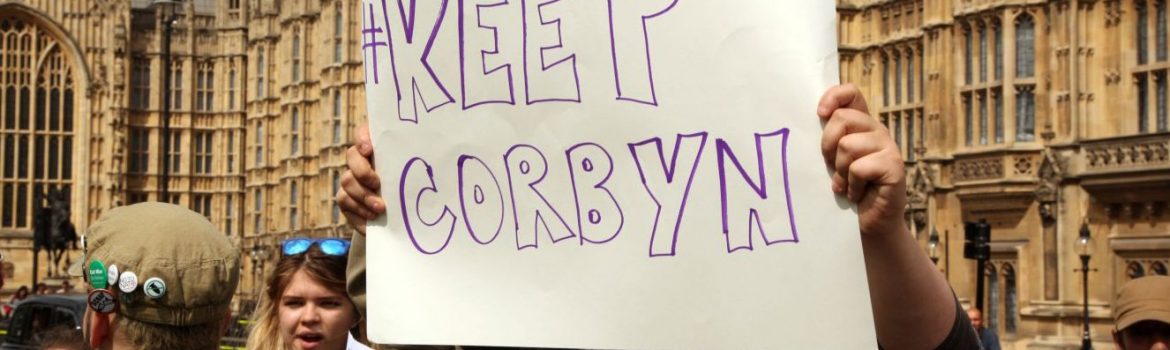 #KEEP
CORBYN